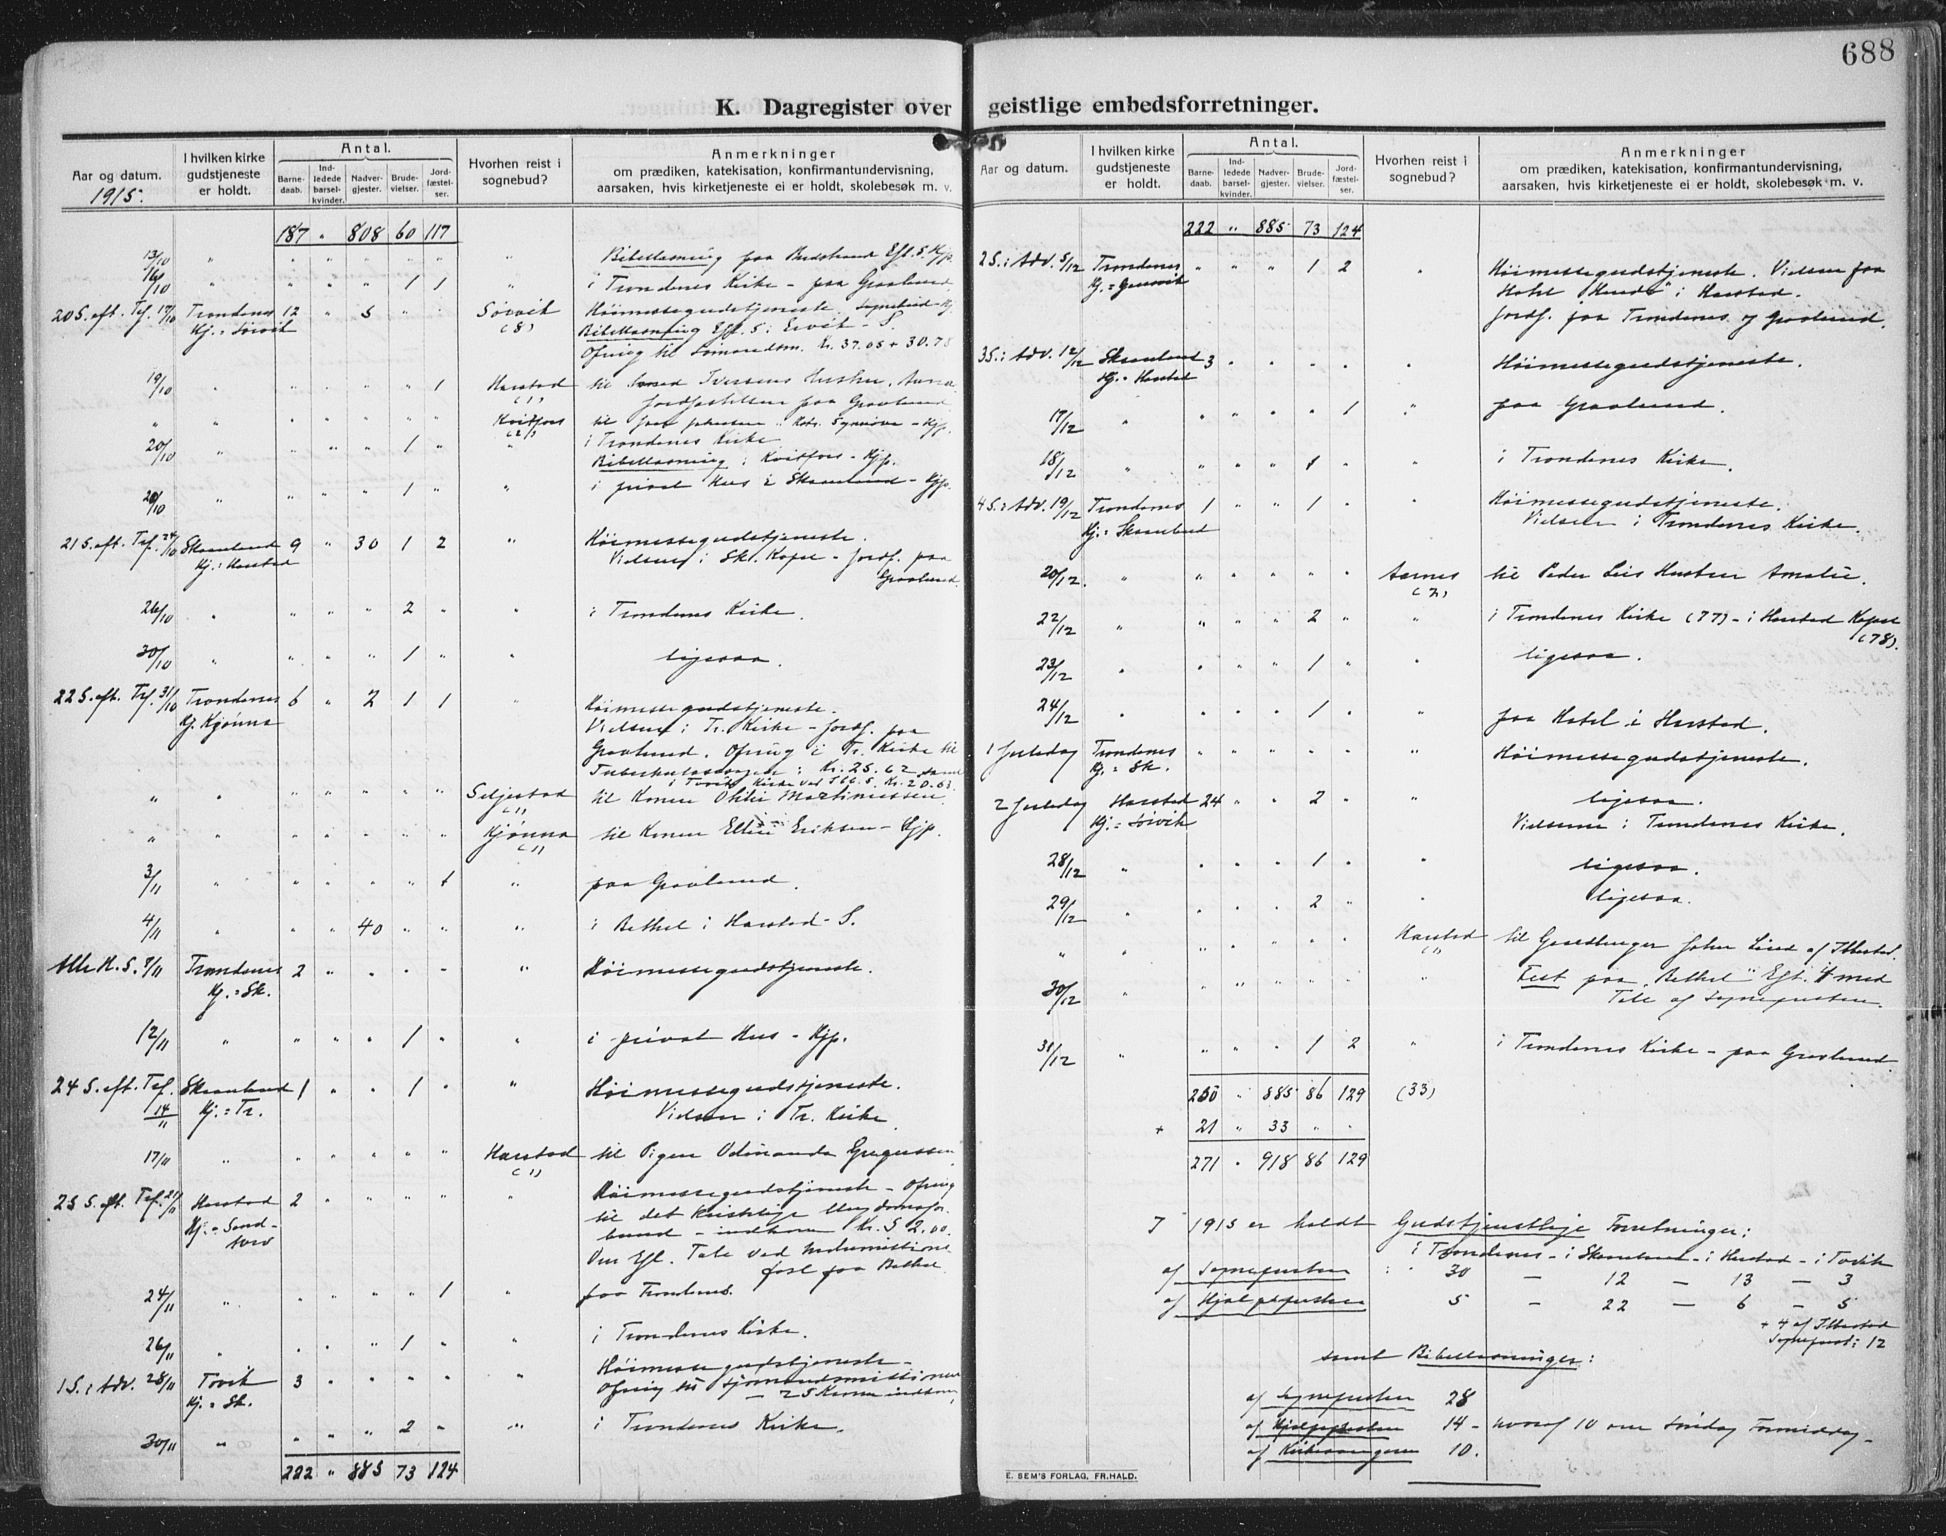 688
K. Dagregister over geistlige embedsforretninger.
Aar og datum.
1915.
I hvilken kirke gudstjeneste er holdt.
Antal.
Barnedaab.
Indledede barselkvinder.
Nadvergjester.
Brudevielser.
Jordfæstelser.
Hvorhen reist i sognebud?
Anmerkninger
om prædiken, katekisation, konfirmantundervisning,
aarsaken, hvis kirketjeneste ei er holdt, skolebesøk m. v.
187 " 808 60 117
13/10 " " " " " " " Bibellæsning paa Eft. 5. Hjp.
16/10 " " " " 1 1 " i Trondenes Kirke - paa Gravlund.
20 S. eft. Tref. 17/10 Trondenes 12 " 5 " " Sørvik Høimessegudstjeneste. Sognebud - Hj.
Hj. = Sørvik (8) Bibellæsning Eft. 5 i Ervik - S.
Ofring til Sømandsm. Kr. 37.05 + 30.75
19/10 " " " " " 1 Harstad til Iversens Hustru,
(1) Jordfæstelsen paa Gravlund.
" " " " " " " Kvitfors til - Hjp.
(2)
20/10 " " " " 1 " " i Trondenes Kirke
Bibellæsning i Kvitfors - Hjp.
20/10 " " " " 1 " " i privat Hus i Skaanland - Hjp.
21 S. eft. Tref. 24/10 Skaanland 9 " 30 1 2 " Høimessegudstjeneste.
Hj. = Harstad Vielsen i Sk. Kapel - Jordf. paa
Gravlund.
26/10 " " " " 2 " " i Trondenes Kirke.
30/10 " " " " 1 " " ligesaa.
22 S. eft. Tref. 31/10 Trondenes 6 " 2 1 1 " Høimessegudstjeneste.
Hj. Kjønna Vielsen i Tr. Kirke - Jordf. paa
Gravlund. Ofring i Tr. Kirke til
Tuberkulosesagen: Kr. 25.62 samt
i Tovik Kirke ved S. Kr. 20.63.
" " " " " " " Seljestad til Konen Otilie Martinussen.
(1)
" " " " " " " Kjønna til Konen Ellen Eriksen - Hjp.
(1)
3/11 " " " " " 1 " paa Gravlund.
4/11 " " " 40 " " " i Bethel i Harstad - S.
Alle H. S. 7/11 Trondenes 2 " " " " " Høimessegudstjeneste.
Hj. = Sk.
12/11 " " " " 1 " " i privat Hus - Hjp.
24 S. eft. Tref. 14/11 Skaanland 1 " " 1 " " Høimessegudstjeneste.
Hj. = Tr. Vielsen i Tr. Kirke
17/11 " " " " " " Harstad til Pigen Odinanda Gregussen
(1)
25 S. eft. Tref. 21/11 Harstad 2 " " " " " Høimessegudstjeneste - Ofring
Hj. = Sandtorv til det kristelige Ungdomsforbund - indkom Kr. 52.00.
Om Eft. Tale ved Indremissions
fest paa Bethel.
24/11 " " " " " 1 " paa Trondenes.
26/11 " " " " 1 " " i Trondenes Kirke.
1 S. i Adv. 28/11 Tovik 3 " " " " " Høimessegudstjeneste -
Hj. = Sk. Ofring til Sjømandsmissionen
- 25 Kroner indkom.
30/11 " " " " 2 " " i Trondenes Kirke.
222 " 885 73 124
Aar og datum.
I hvilken kirke gudstjeneste er holdt.
Antal.
Barnedaab.
Indledede barselkvinder.
Nadvergjester.
Brudevielser.
Jordfæstelser.
Hvorhen reist i sognebud?
Anmerkninger
om prædiken, katekisation, konfirmantundervisning,
aarsaken, hvis kirketjeneste ei er holdt, skolebesøk m. v.
222 " 885 73 124
2 S. i Adv. 5/12 Trondenes " " " 1 2 " Høimessegudstjeneste. Vielsen paa
Hj. = Hotel i Harstad.
Jordf. paa Trondenes og Gravlund.
3 S. i Adv. 12/12 Skaanland 3 " " " " " Høimessegudstjeneste.
Hj. = Harstad
17/12 " " " " " 1 " paa Gravlund.
18/12 " " " " 1 " " i Trondenes Kirke.
4 S. i Adv. 19/12 Trondenes 1 " " 1 " " Høimessegudstjeneste.
Hj. = Skaanland Vielsen i Trondenes Kirke.
20/12 " " " " " " Aarnes til Peder Hustru Amalie.
(2)
22/12 " " " " 2 " " i Trondenes Kirke (77) - i Harstad Kapel
(78).
23/12 " " " " 1 " " ligesaa.
24/12 " " " " 1 " " paa Hotel i Harstad.
1 Juledag Trondenes " " " " " " Høimessegudstjeneste.
Hj. = Sk.
2 Juledag Harstad 24 " " 2 " " ligesaa.
Hj. = Sørvik Vielserne i Trondenes Kirke.
28/12 " " " " 1 " " ligesaa.
29/12 " " " " 2 " " ligesaa.
" " " " " " " Harstad til Gaardbruger Johan Lind af Ibbestad.
(1)
30/12 " " " " " " " Fest paa "Bethel" Eft. 4 med
Tale af Sognepresten.
31/12 " " " " 1 2 " i Trondenes Kirke - paa Gravlund
250 " 885 86 129 (33)
+ 21 " 33 " "
271 " 918 86 129
I 1915 er holdt Gudstjenstlige Forretninger:
i Trondenes - i Skaanland - i Harstad - i Tovik
af Sognepresten : 30 - 12 - 13 - 3
af Hjælpepresten 5 - 22 - 6 - 5
+ 4 af Ibbestad
Sogneprest: 12
samt Bibellæsninger:
af Sognepresten 28
af Hjælpepresten 14 - hvoraf 10 om Søndag Formiddag -
af Kirkesangeren 10.
E. SEM'S FORLAG, FR.HALD.